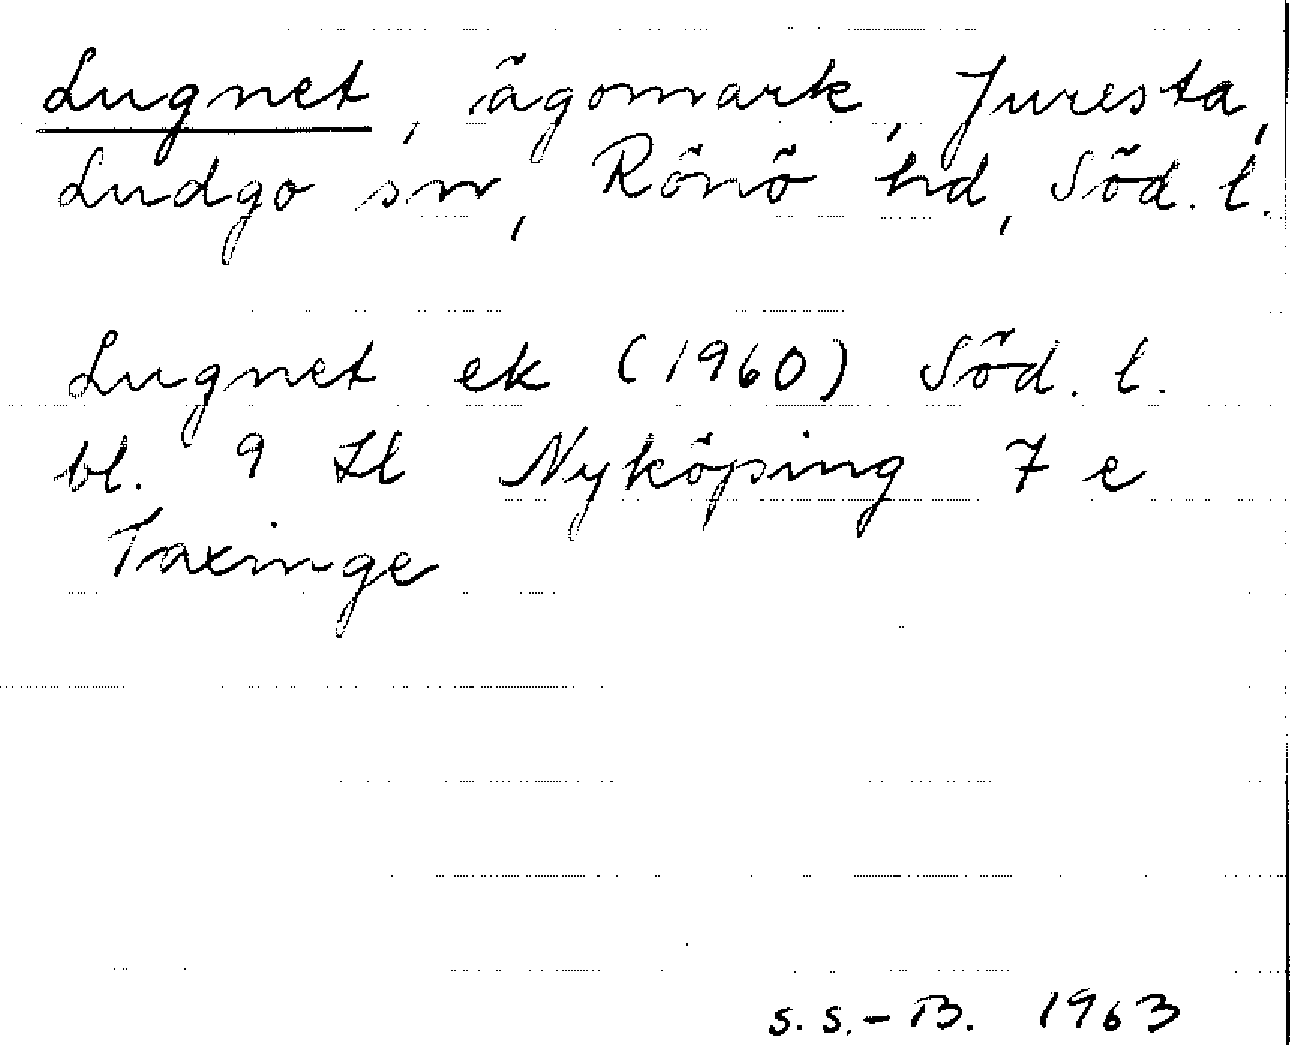 Lugnet, ägomark, Juresta,
Ludgo sn, Rönö hd, Söd. l.
Lugnet ek (1960) Söd. l.
bl. 9 Nyköping 7 e
Taxinge
S. S.-B. 1963